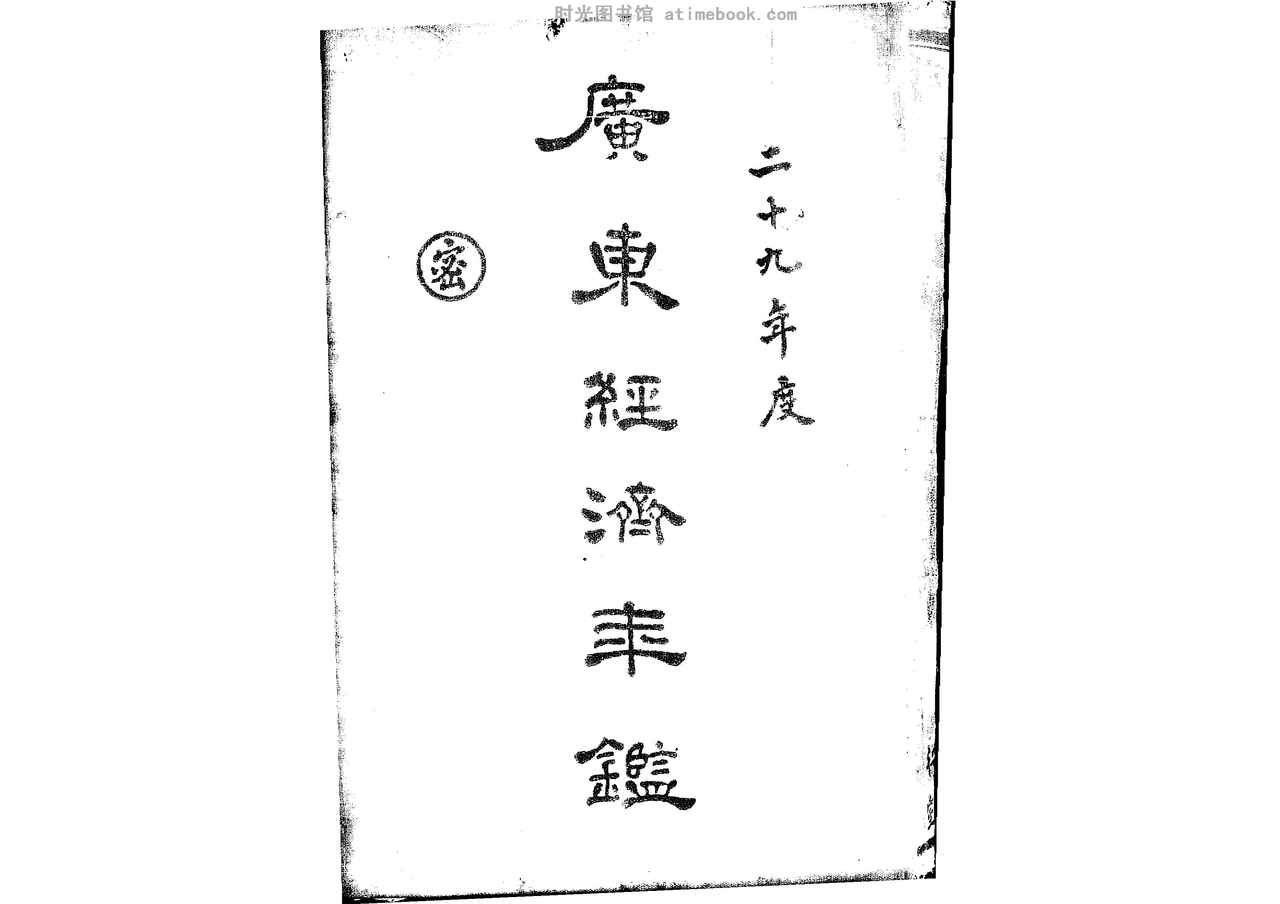 时光图书馆 atimebook.com
二十九年度
廣東經濟年鑑
密